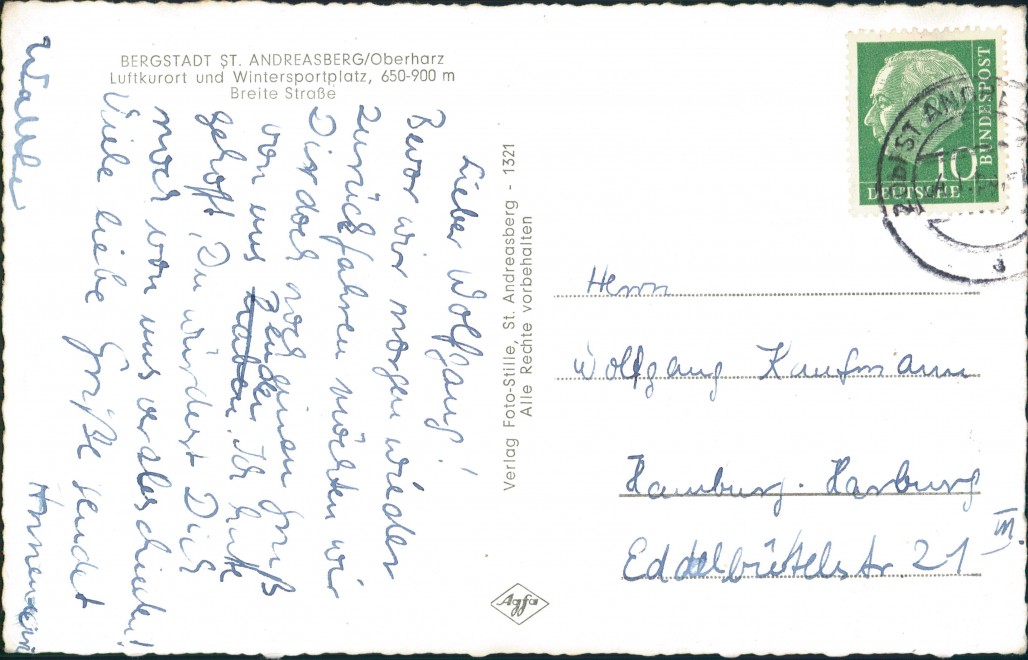 BERGSTADT ST. ANDREASBERG/Oberharz
Luftkurort und Wintersportplatz, 650-900 m
Breite Straße
Lieber Wolfgang!
Bevor wir morgen wieder
zurückfahren möchten wir
Dir doch noch einen Gruß
von uns haben senden. Ich hatte
gehofft, Du würdest Dich
noch von uns verabschieden!
Viele liebe Grüße sendet
Verlag Foto-Stille, St. Andreasberg - 1321
Alle Rechte vorbehalten
Agfa
10
DEUTSCHE
BUNDESPOST
ST AN
Herrn
Wolfgang Kaufmann
Hamburg-Harburg
Eddelbüttelstr 21 III.